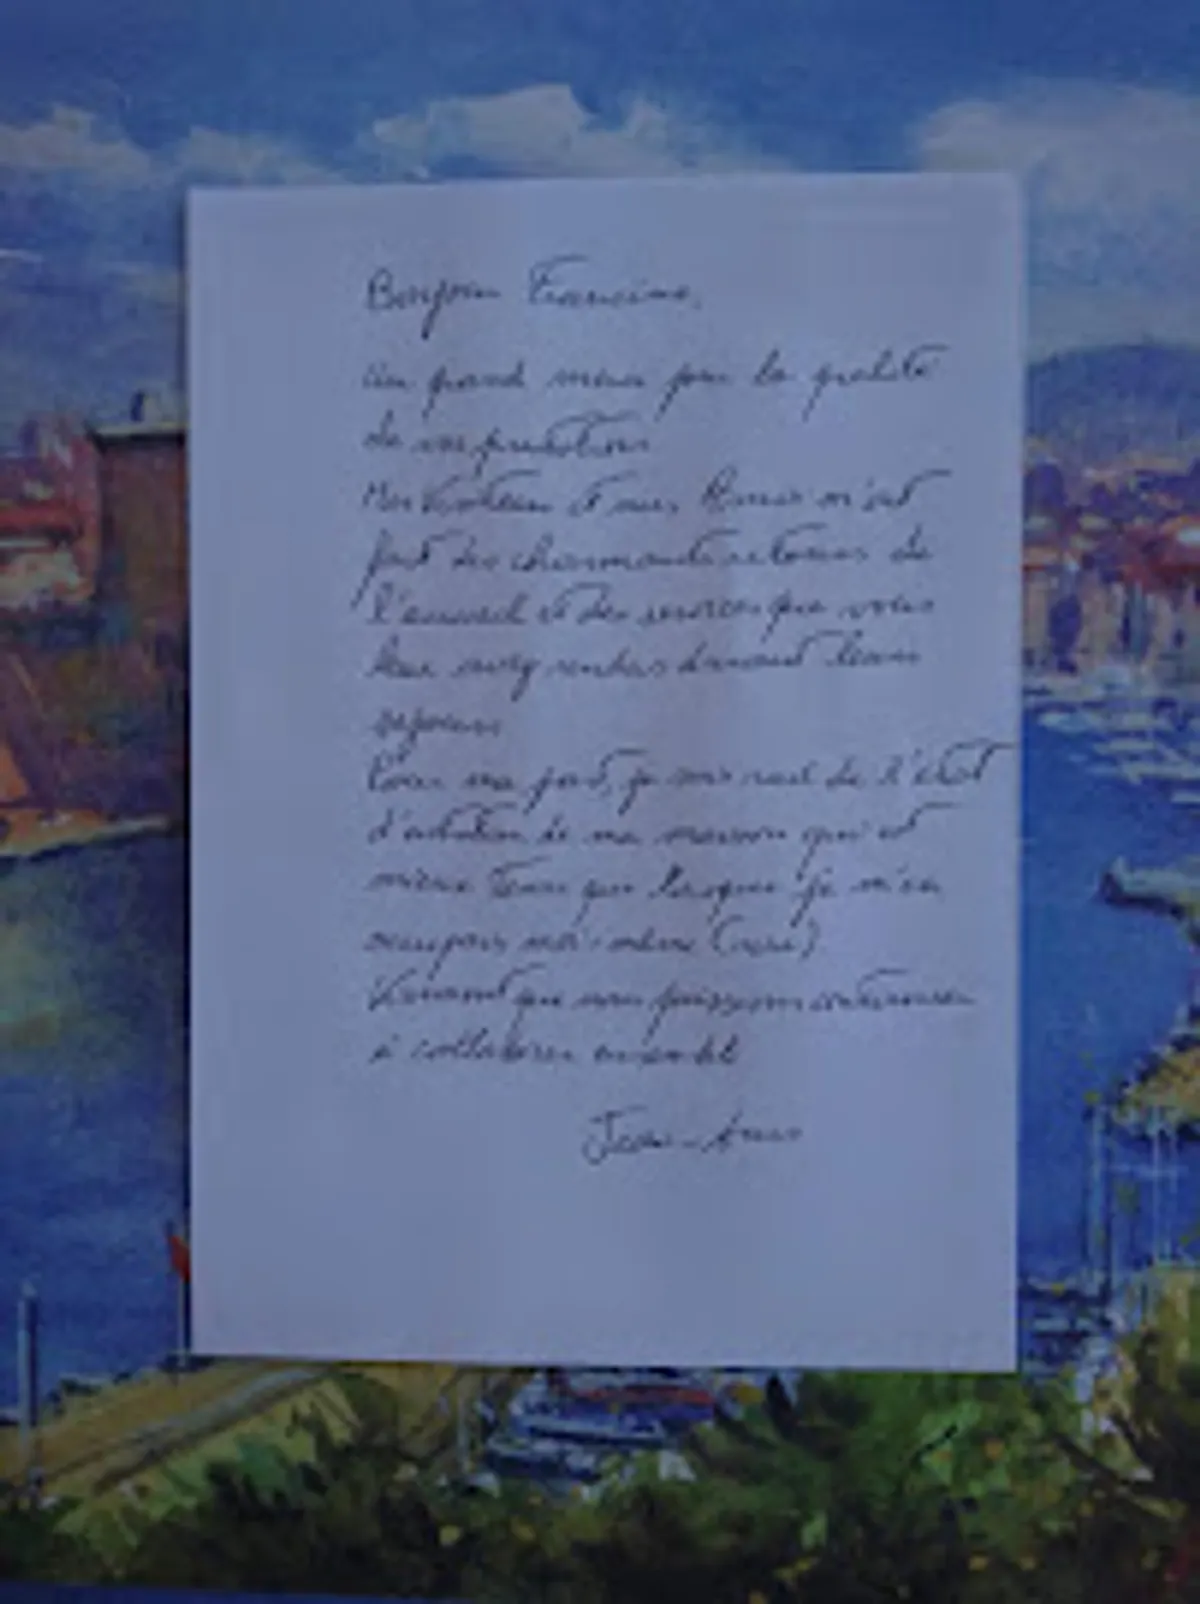 Bonjour Francine,
Un grand merci pour la qualité
de vos prestations
Mes et mes Amis m'ont
fait des charmants retours de
l'accueil et des services que vous
leur avez rendus durant leurs
séjours
Pour ma part, je suis ravi de l'état
d'entretien de ma maison qui est
mieux tenue que lorsque je m'en
occupais moi-même
Vivement que nous puissions continuer
à collaborer ensemble
Jean-